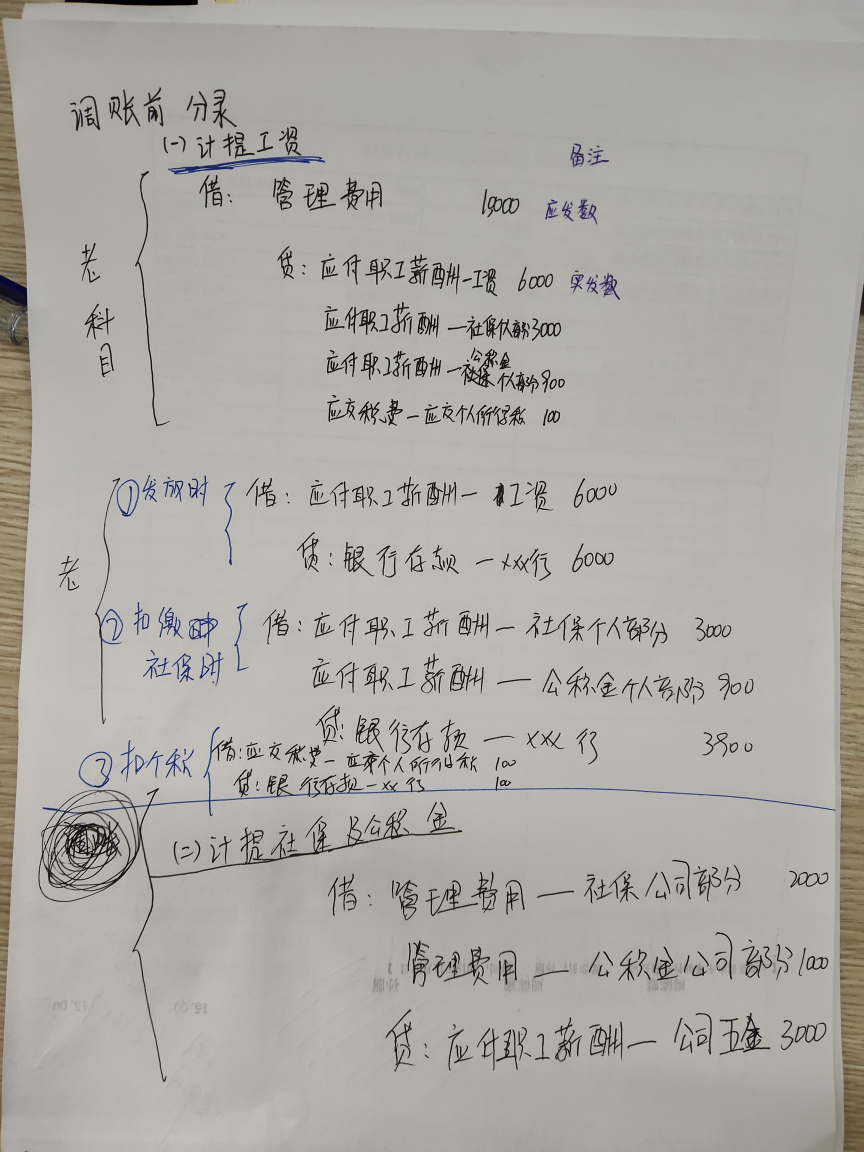 调账前 分录
(一) 计提工资
备注
借: 管理费用 10000 应发数
老科目
贷: 应付职工薪酬-工资 6000 实发数
应付职工薪酬-社保个人部分3000
应付职工薪酬-公积金个人部分900
应交税费-应交个人所得税 100
老
①发放时 借: 应付职工薪酬-工资 6000
贷: 银行存款-xxx行 6000
②扣缴社保时 借: 应付职工薪酬-社保个人部分 3000
应付职工薪酬-公积金个人部分 900
贷: 银行存款-xxx行 3900
③扣个税 借: 应交税费-应交个人所得税 100
贷: 银行存款-xx行 100
(二) 计提社保及公积金
借: 管理费用-社保公司部分 2000
管理费用-公积金公司部分 1000
贷: 应付职工薪酬-公司五金 3000